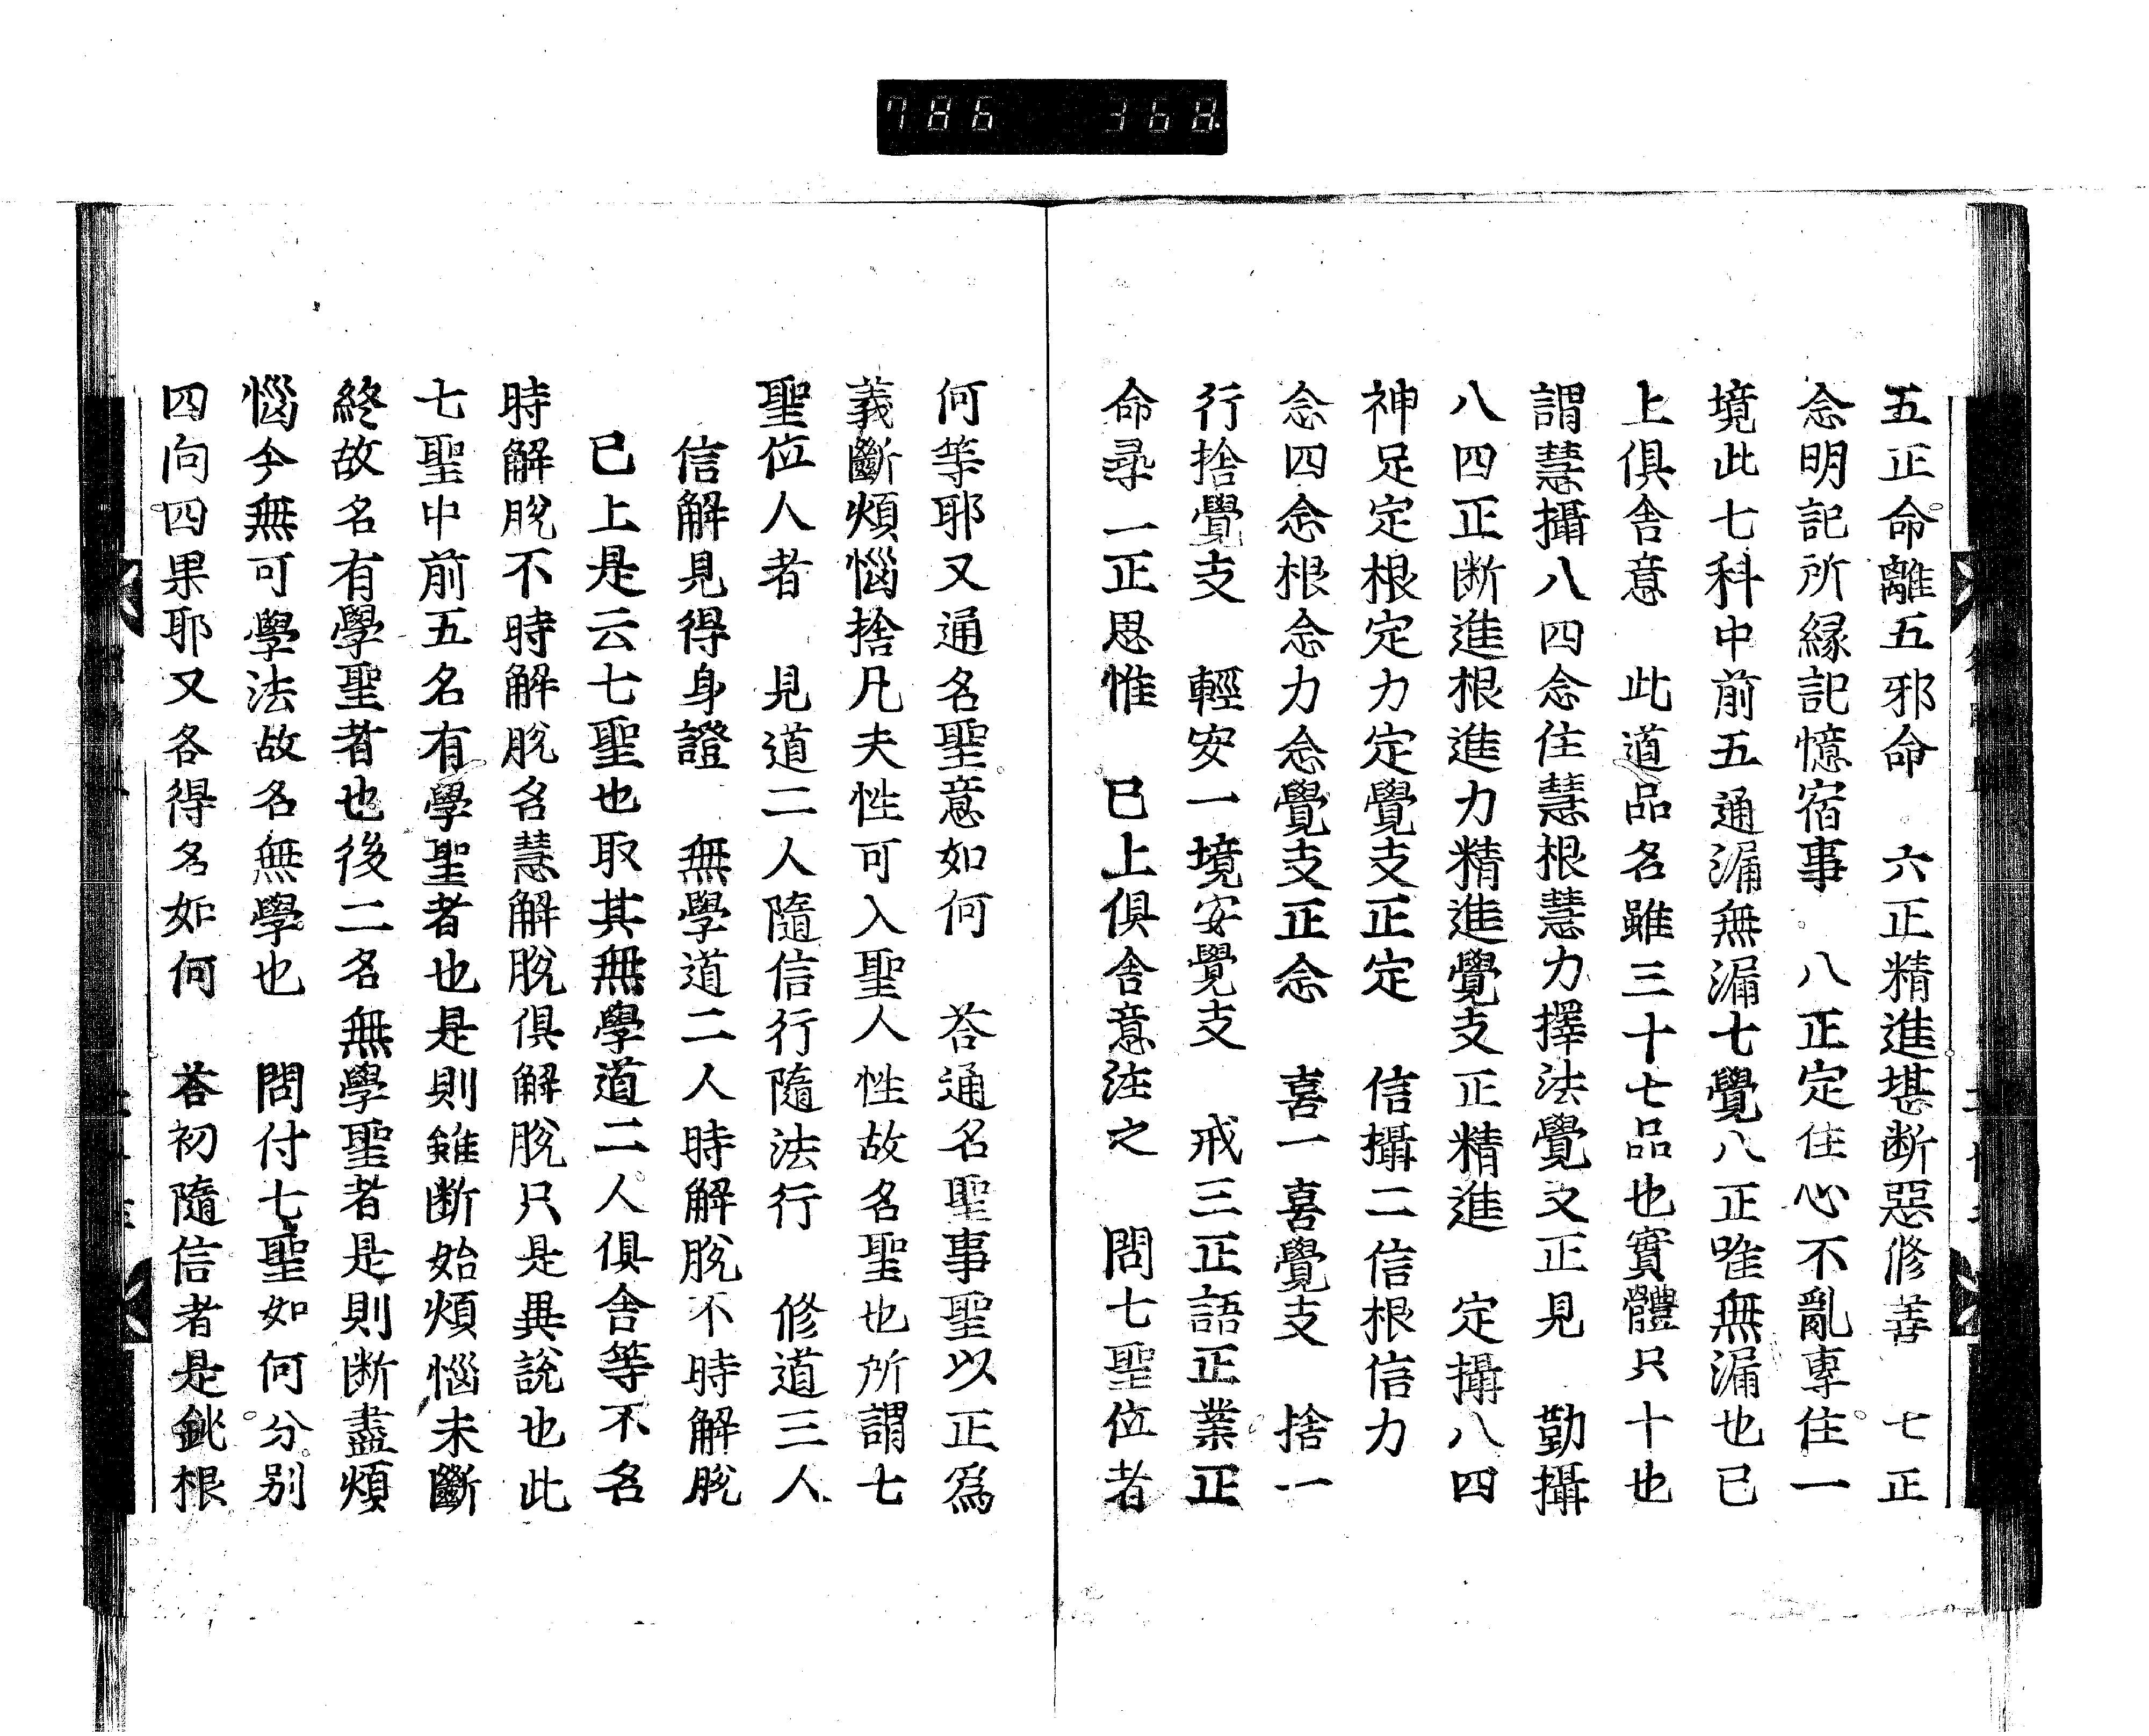 786 368.
五正命離五邪命 六正精進堪断惡修善 七正
念明記所縁記憶宿事 八正定住心不亂專住一
境此七科中前五通漏無漏七覺八正唯無漏也已
上俱舎意 此道品名雖三十七品也實體只十也
謂慧攝八四念住慧根慧力擇法覺支正見 勤攝
八四正断進根進力精進覺支正精進 定攝八四
神足定根定力定覺支正定 信攝二信根信力
念四念根念力念覺支正念 喜一喜覺支 捨一
行捨覺支 輕安一境安覺支 戒三正語正業正
命尋一正思惟 已上俱舎意注之 問七聖位者
何等耶又通名聖意如何 荅通名聖事聖以正爲
義斷煩惱捨凡夫性可入聖人性故名聖也所謂七
聖位人者 見道二人隨信行隨法行 修道三人
信解見得身證 無學道二人時解脫不時解脫
已上是云七聖也取其無學道二人俱舎等不名
時解脫不時解脫名慧解脫俱解脫只是異說也此
七聖中前五名有學聖者也是則雖断始煩惱未斷
終故名有學聖者也後二名無學聖者是則断盡煩
惱今無可學法故名無學也 問付七聖如何分别
四向四果耶又各得名如何 荅初隨信者是鈍根